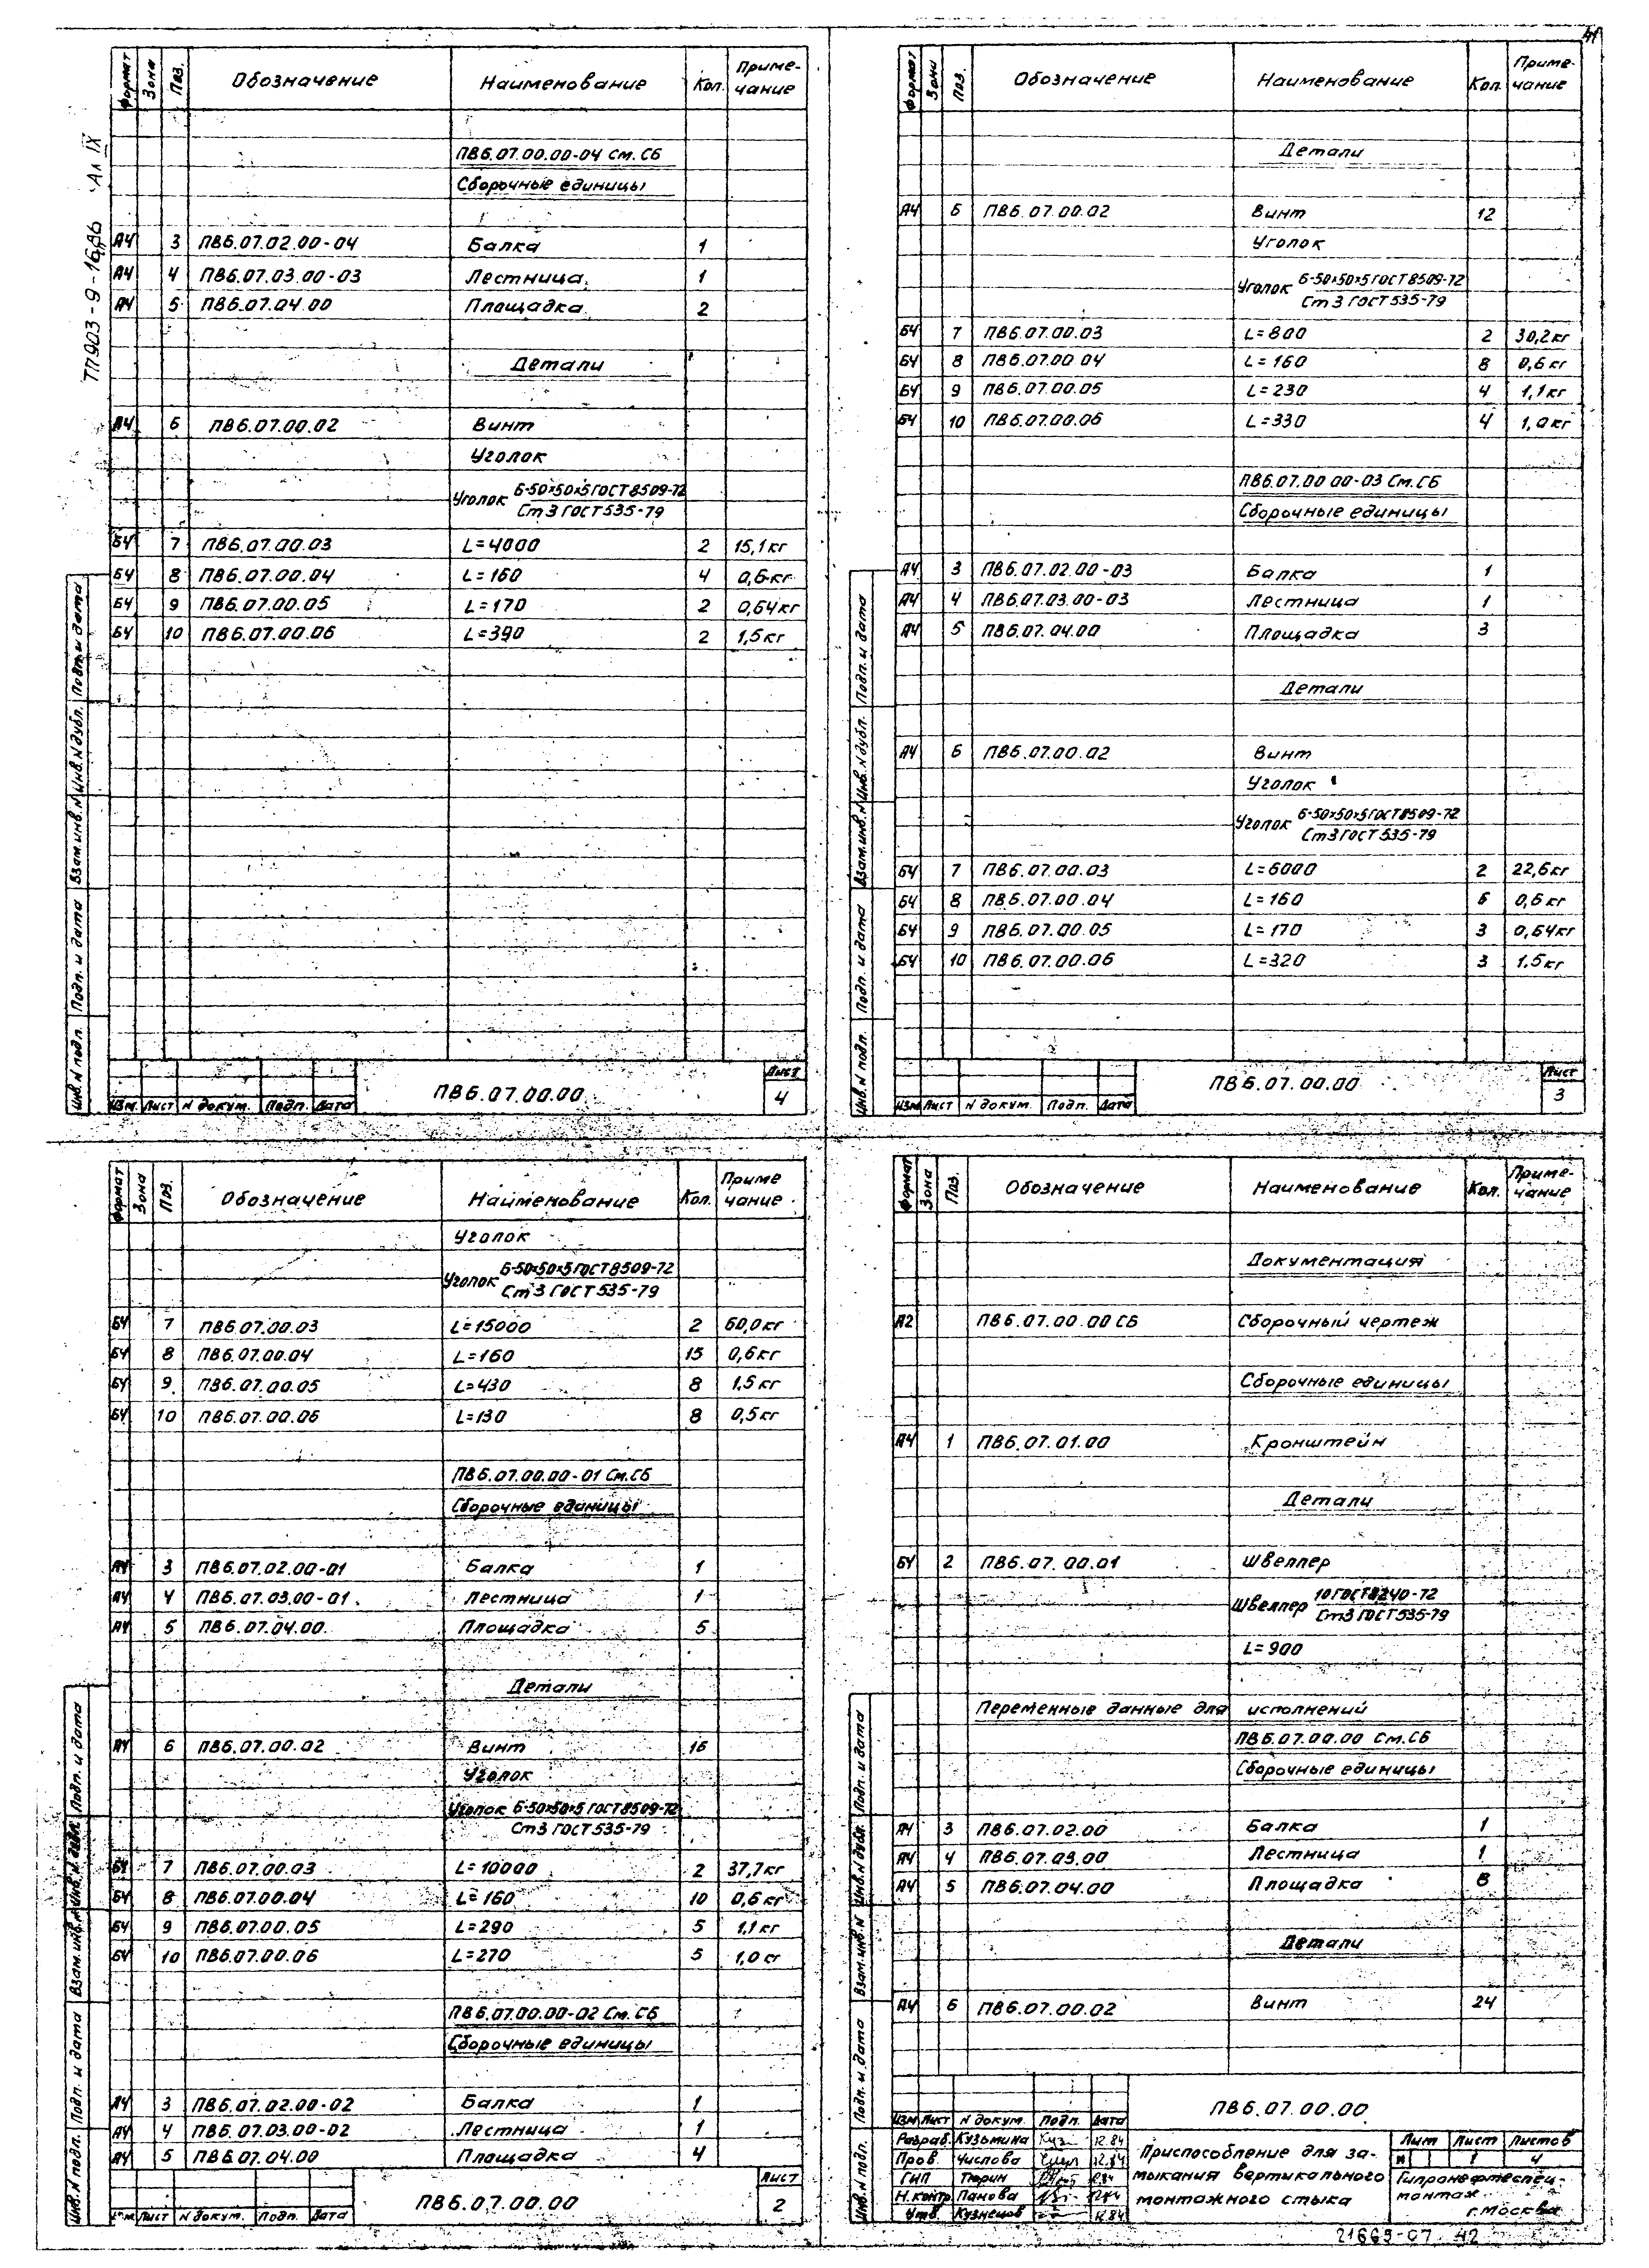 41
ТП903-9-16,86 Ал IX
Формат Зона Поз. Обозначение Наименование Кол. Примечание
ПВ6.07.00.00-04 См.СБ
Сборочные единицы
А4 3 ПВ6.07.02.00-04 Балка 1
А4 4 ПВ6.07.03.00-03 Лестница 1
А4 5 ПВ6.07.04.00 Площадка 2
Детали
А4 6 ПВ6.07.00.02 Винт
Уголок
Уголок Б-50×50×5 ГОСТ 8509-72
Ст3 ГОСТ 535-79
БЧ 7 ПВ6.07.00.03 L=4000 2 15,1кг
БЧ 8 ПВ6.07.00.04 L=160 4 0,6кг
БЧ 9 ПВ6.07.00.05 L=170 2 0,64кг
БЧ 10 ПВ6.07.00.06 L=390 2 1,5кг
Изм. Лист N докум. Подп. Дата ПВ6.07.00.00 Лист 4
Инв.N подл. Подп. и дата Взам.инв.N Инв.N дубл. Подп. и дата
Формат Зона Поз. Обозначение Наименование Кол. Примечание
Детали
А4 6 ПВ6.07.00.02 Винт 12
Уголок
Уголок Б-50×50×5 ГОСТ 8509-72
Ст3 ГОСТ 535-79
БЧ 7 ПВ6.07.00.03 L=800 2 30,2кг
БЧ 8 ПВ6.07.00.04 L=160 8 0,6кг
БЧ 9 ПВ6.07.00.05 L=230 4 1,1кг
БЧ 10 ПВ6.07.00.06 L=330 4 1,0кг
ПВ6.07.00.00-03 См.СБ
Сборочные единицы
А4 3 ПВ6.07.02.00-03 Балка 1
А4 4 ПВ6.07.03.00-03 Лестница 1
А4 5 ПВ6.07.04.00 Площадка 3
Детали
А4 6 ПВ6.07.00.02 Винт
Уголок
Уголок Б-50×50×5 ГОСТ 8509-72
Ст3 ГОСТ 535-79
БЧ 7 ПВ6.07.00.03 L=6000 2 22,6кг
БЧ 8 ПВ6.07.00.04 L=160 6 0,6кг
БЧ 9 ПВ6.07.00.05 L=170 3 0,64кг
БЧ 10 ПВ6.07.00.06 L=320 3 1.5кг
Изм Лист N докум. Подп. Дата ПВ6.07.00.00 Лист 3
Инв.N подл. Подп. и дата Взам.инв.N Инв.N дубл. Подп. и дата
Формат Зона Поз. Обозначение Наименование Кол. Примечание
Уголок
Уголок Б-50×50×5 ГОСТ 8509-72
Ст3 ГОСТ 535-79
БЧ 7 ПВ6.07.00.03 L=15000 2 60,0кг
БЧ 8 ПВ6.07.00.04 L=160 15 0,6кг
БЧ 9 ПВ6.07.00.05 L=430 8 1.5кг
БЧ 10 ПВ6.07.00.06 L=130 8 0,5кг
ПВ6.07.00.00-01 См.СБ
Сборочные единицы
А4 3 ПВ6.07.02.00-01 Балка 1
А4 4 ПВ6.07.03.00-01 Лестница 1
А4 5 ПВ6.07.04.00 Площадка 5
Детали
А4 6 ПВ6.07.00.02 Винт 16
Уголок
Уголок Б-50×50×5 ГОСТ 8509-72
Ст3 ГОСТ 535-79
БЧ 7 ПВ6.07.00.03 L=10000 2 37,7кг
БЧ 8 ПВ6.07.00.04 L=160 10 0,6кг
БЧ 9 ПВ6.07.00.05 L=290 5 1,1кг
БЧ 10 ПВ6.07.00.06 L=270 5 1,0кг
ПВ6.07.00.00-02 См.СБ
Сборочные единицы
А4 3 ПВ6.07.02.00-02 Балка 1
А4 4 ПВ6.07.03.00-02 Лестница 1
А4 5 ПВ6.07.04.00 Площадка 4
Изм. Лист N докум. Подп. Дата ПВ6.07.00.00 Лист 2
Инв.N подл. Подп. и дата Взам.инв.N Инв.N дубл. Подп. и дата
Формат Зона Поз. Обозначение Наименование Кол. Примечание
Документация
А2 ПВ6.07.00.00 СБ Сборочный чертеж
Сборочные единицы
А4 1 ПВ6.07.01.00 Кронштейн
Детали
БЧ 2 ПВ6.07.00.01 Швеллер
Швеллер 10 ГОСТ 8240-72
Ст3 ГОСТ 535-79
L=900
Переменные данные для исполнений
ПВ6.07.00.00 См.СБ
Сборочные единицы
А4 3 ПВ6.07.02.00 Балка 1
А4 4 ПВ6.07.03.00 Лестница 1
А4 5 ПВ6.07.04.00 Площадка 8
Детали
А4 6 ПВ6.07.00.02 Винт 24
ПВ6.07.00.00
Изм Лист N докум. Подп. Дата
Разраб. Кузьмина 12.84
Пров. Числова 12.84
ГИП Тюрин
Н.контр. Панова
Утв. Кузнецов 12.84
Приспособление для за-
мыкания вертикального
монтажного стыка
Лит Лист Листов
1 4
Гипронефтеспец-
монтаж
г.Москва
Инв.N подл. Подп. и дата Взам.инв.N Инв.N дубл. Подп. и дата
21669-07 42